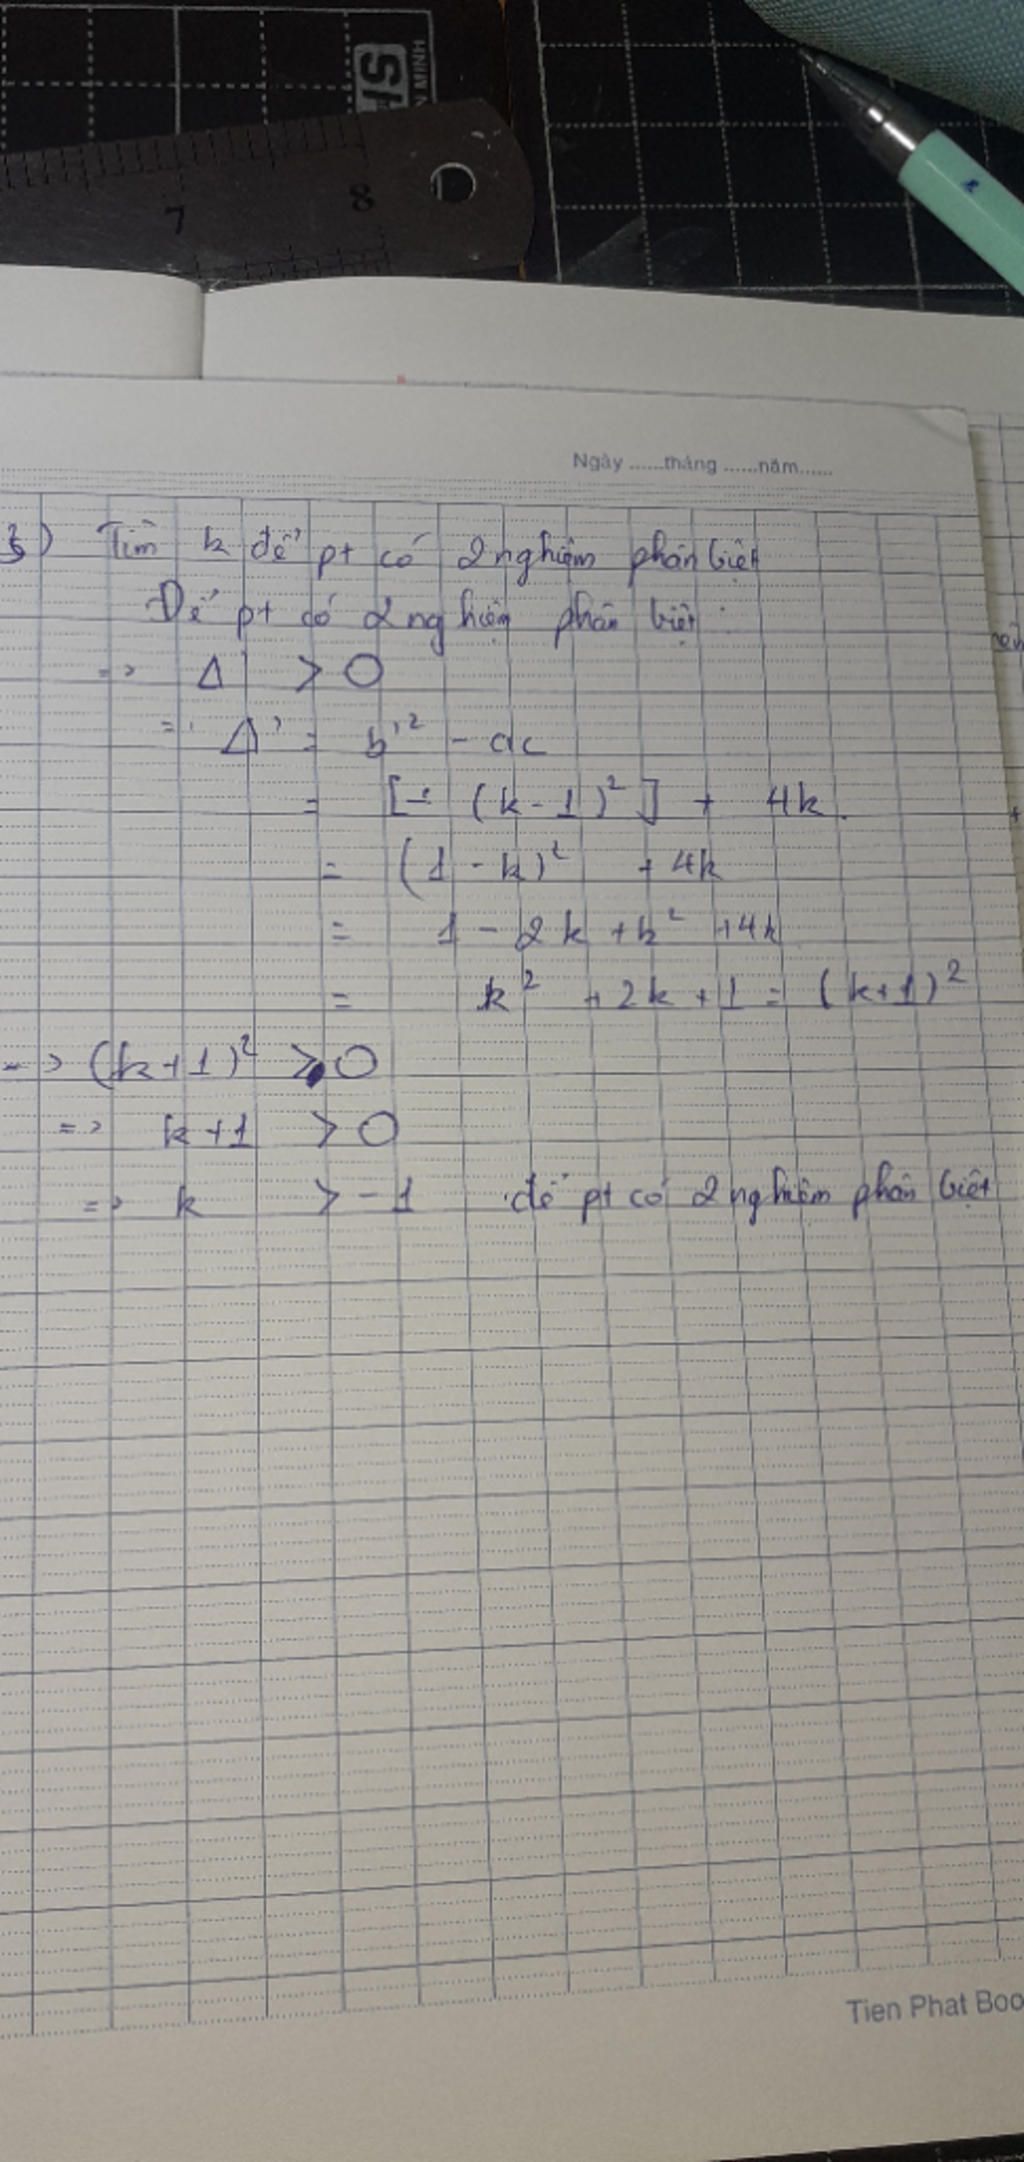 7 8
N MINH
Ngày ......tháng ......năm......
3) Tìm k để pt có 2 nghiệm phân biệt
Để pt có 2 nghiệm phân biệt :
=> Δ' > 0
=> Δ' = b'² - ac
= [- (k-1)²] + 4k.
= (1 - k)² + 4k
= 1 - 2k + k² + 4k
= k² + 2k + 1 = (k+1)²
=> (k+1)² > 0
=> k+1 > 0
=> k > -1 để pt có 2 nghiệm phân biệt
Tien Phat Boo